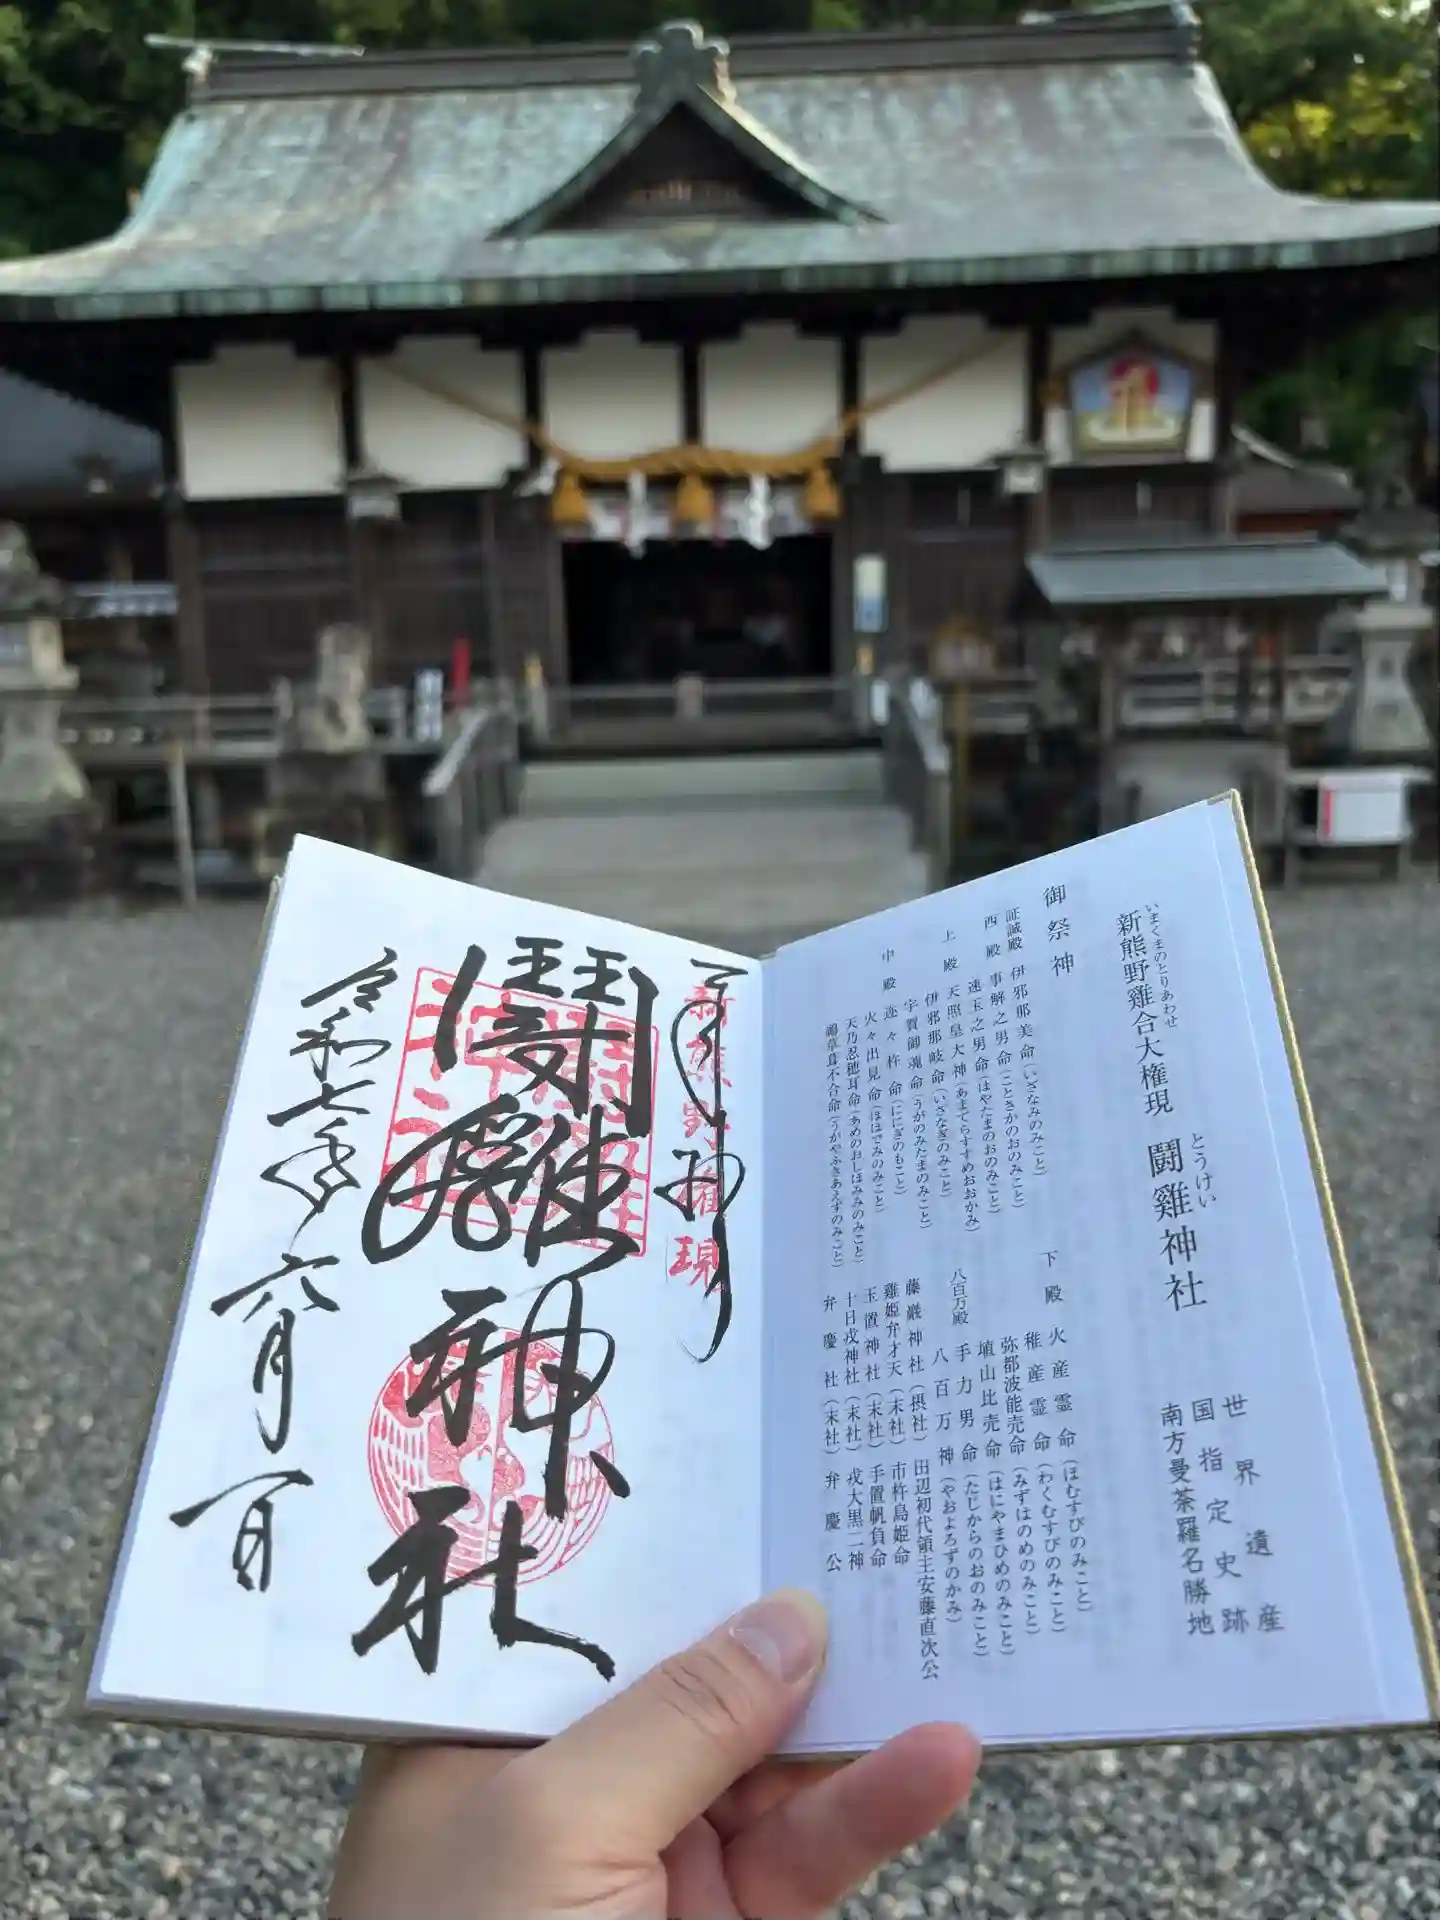 いまくまのとりあわせ
新熊野雞合大権現
とうけい
闘雞神社
世界遺産
国指定史跡
南方曼荼羅名勝地
御祭神
証誠殿 伊邪那美命(いざなみのみこと)
西殿 事解之男命(ことさかのおのみこと)
速玉之男命(はやたまのおのみこと)
上殿 天照皇大神(あまてらすすめおおかみ)
伊邪那岐命(いざなぎのみこと)
宇賀御魂命(うがのみたまのみこと)
中殿 迩々杵命(ににぎのもこと)
火々出見命(ほほでみのみこと)
天乃忍穂耳命(あめのおしほみみのみこと)
鵜草葺不合命(うがやふきあえずのみこと)
下殿 火産霊命(ほむすびのみこと)
稚産霊命(わくむすびのみこと)
弥都波能売命(みずはのめのみこと)
埴山比売命(はにやまひめのみこと)
八百万殿 手力男命(たじからのおのみこと)
八百万神(やおよろずのかみ)
藤巌神社(摂社) 田辺初代領主安藤直次公
雞姫弁才天(末社) 市杵島姫命
玉置神社(末社) 手置帆負命
十日戎神社(末社) 戎大黒二神
弁慶社(末社) 弁慶公
奉拝
新熊野権現
闘雞神社
令和七年六月一日